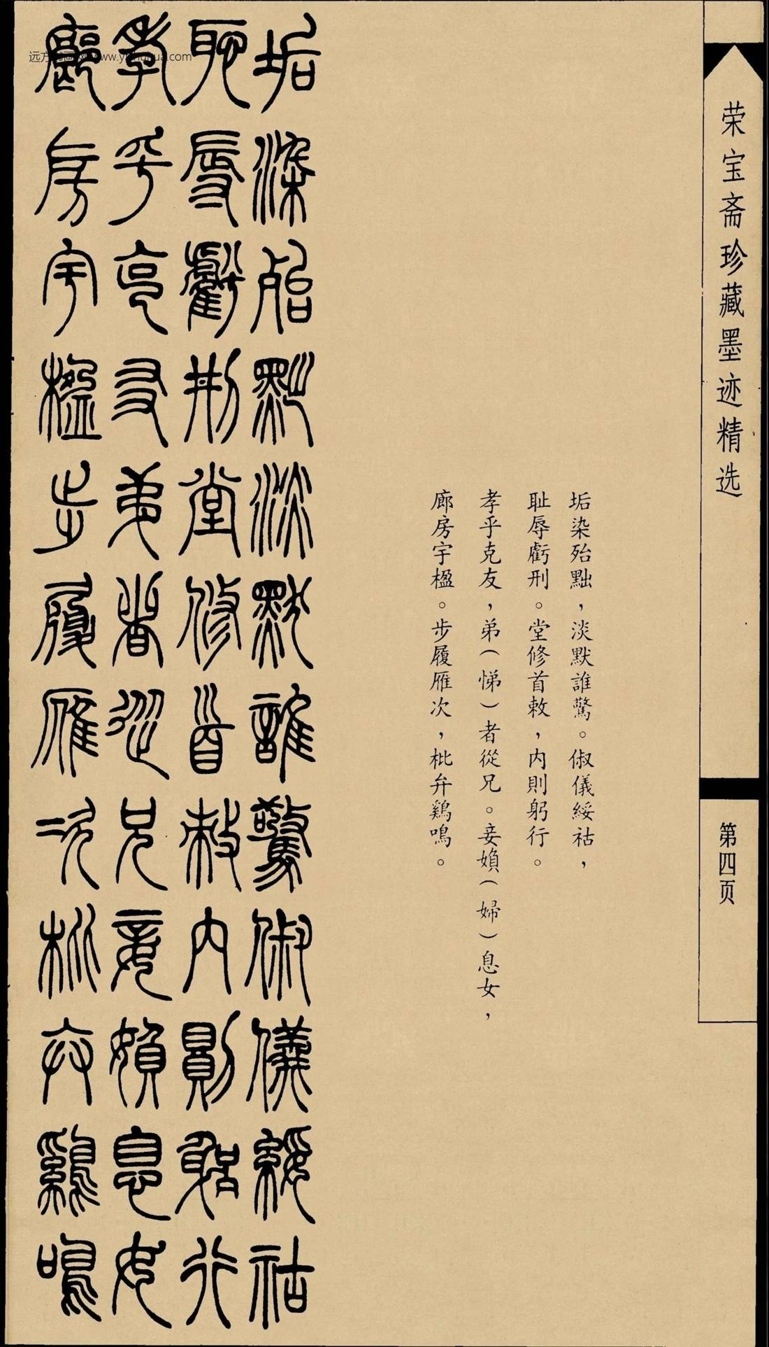 荣宝斋珍藏墨迹精选
第四页
垢染殆黜，淡默誰驚。俶儀綏祜，
耻辱虧刑。堂修首敕，内則躬行。
孝乎克友，弟（悌）者從兄。妾媍（婦）息女，
廊房宇楹。步履雁次，枇弁鷄鳴。
垢染殆黜淡默誰驚俶儀綏祜
耻辱虧刑堂修首敕内則躬行
孝乎克友弟者從兄妾媍息女
廊房宇楹步履雁次枇弁鷄鳴